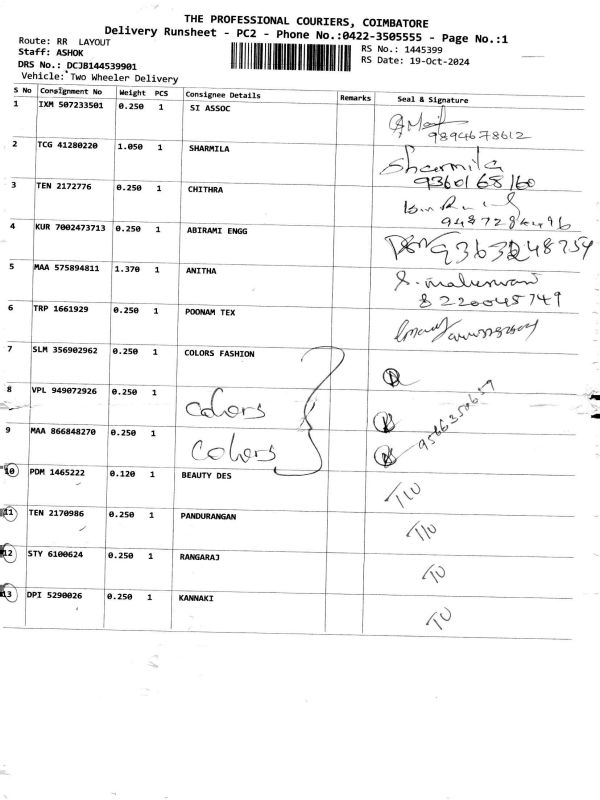 THE PROFESSIONAL COURIERS, COIMBATORE
Delivery Runsheet - PC2 - Phone No.:0422-3505555 - Page No.:1
Route: RR LAYOUT
RS No.: 1445399
Staff: ASHOK
RS Date: 19-Oct-2024
DRS No.: DCJB144539901
Vehicle: Two Wheeler Delivery
S No Consignment No Weight PCS Consignee Details Remarks Seal & Signature
1 IXM 507233501 0.250 1 SI ASSOC
9894678612
2 TCG 41280220 1.050 1 SHARMILA Sharmila
9360168160
3 TEN 2172776 0.250 1 CHITHRA
4 KUR 7002473713 0.250 1 ABIRAMI ENGG
5 MAA 575894811 1.370 1 ANITHA S. maheswari
8220045749
6 TRP 1661929 0.250 1 POONAM TEX
7 SLM 356902962 0.250 1 COLORS FASHION
8 VPL 949072926 0.250 1 colors
9 MAA 866848270 0.250 1 colors
10 PDM 1465222 0.120 1 BEAUTY DES
11 TEN 2170986 0.250 1 PANDURANGAN
12 STY 6100624 0.250 1 RANGARAJ
13 DPI 5290026 0.250 1 KANNAKI